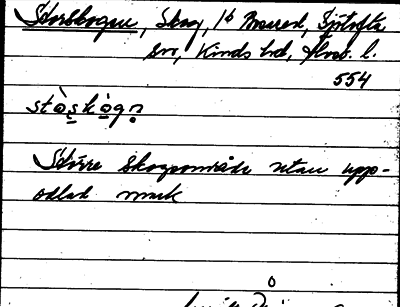 Storskogen, Skog, 1⁶ Mared, Sjötofta
sn, Kinds hd, Älvsb. l.
554
stòskògn
Större skogsområde utan upp-
odlad mark